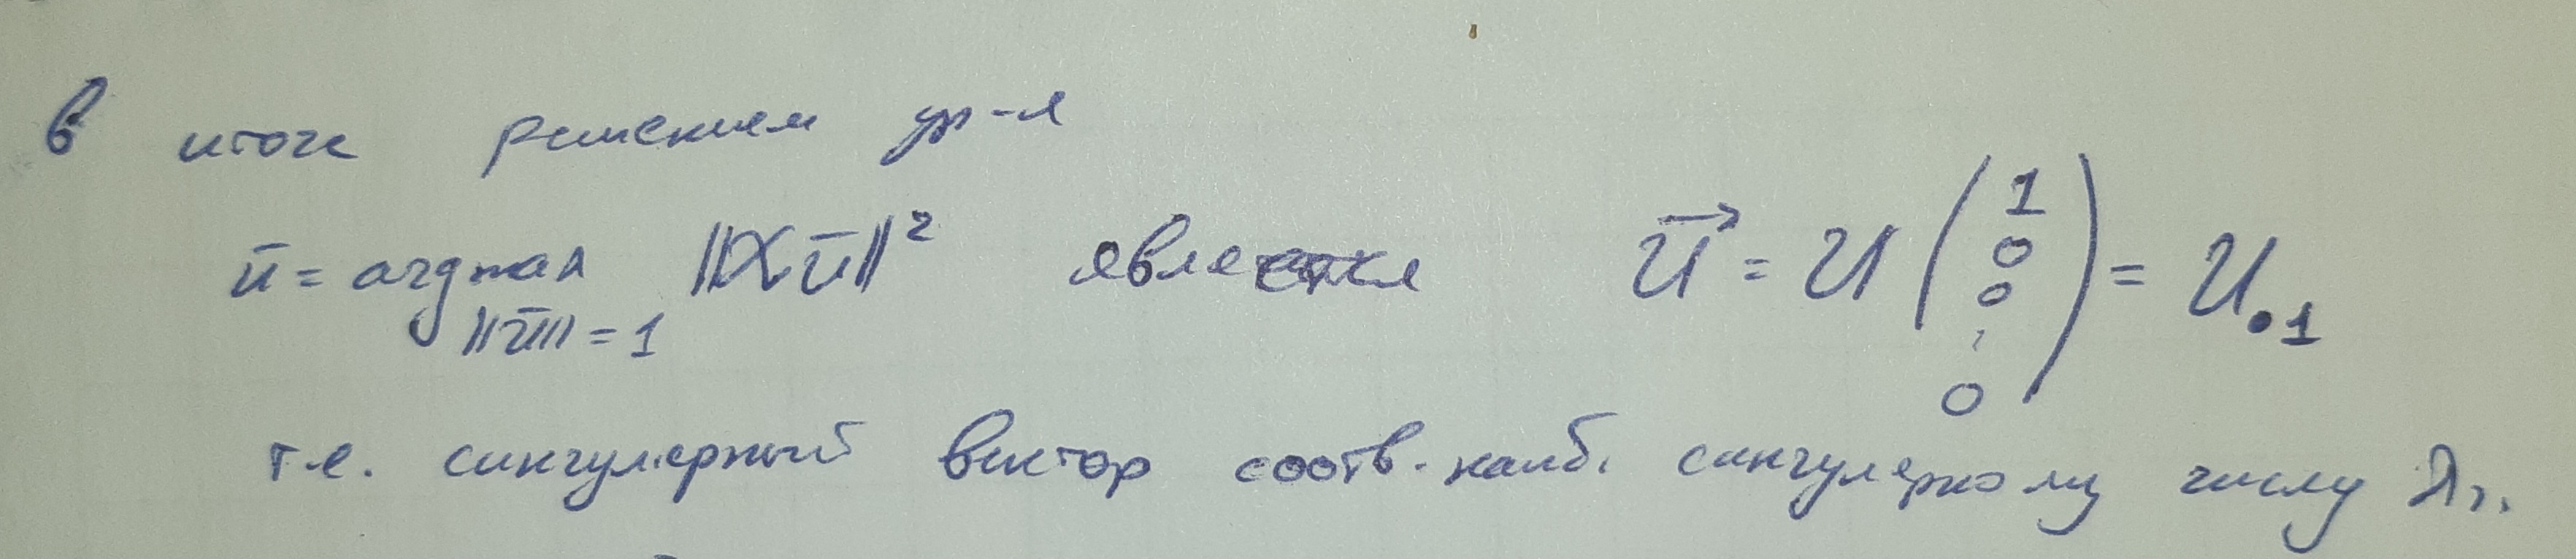 В итоге решением ур-я
ū = argmax ||Xū||² является u⃗ = U (1 0 0 ⋮ 0) = U•1
||ū|| = 1
т.е. сингулярный вектор соотв. наиб. сингулярному числу λ1.